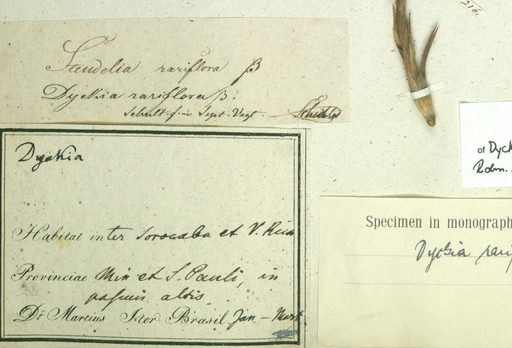 216.
Stendelia rariflora β
Dyckia rariflora β.
Schult. f. in Syst. Veget.
Dyckia
Habitat inter Sorocaba et V. Rica
Provinciae Min et S. Pauli, in
pascuis altis
Dr Martius Iter Brasil Jan – Mart.
of Dyck
Robn.
Specimen in monograph
Dyckia rarif